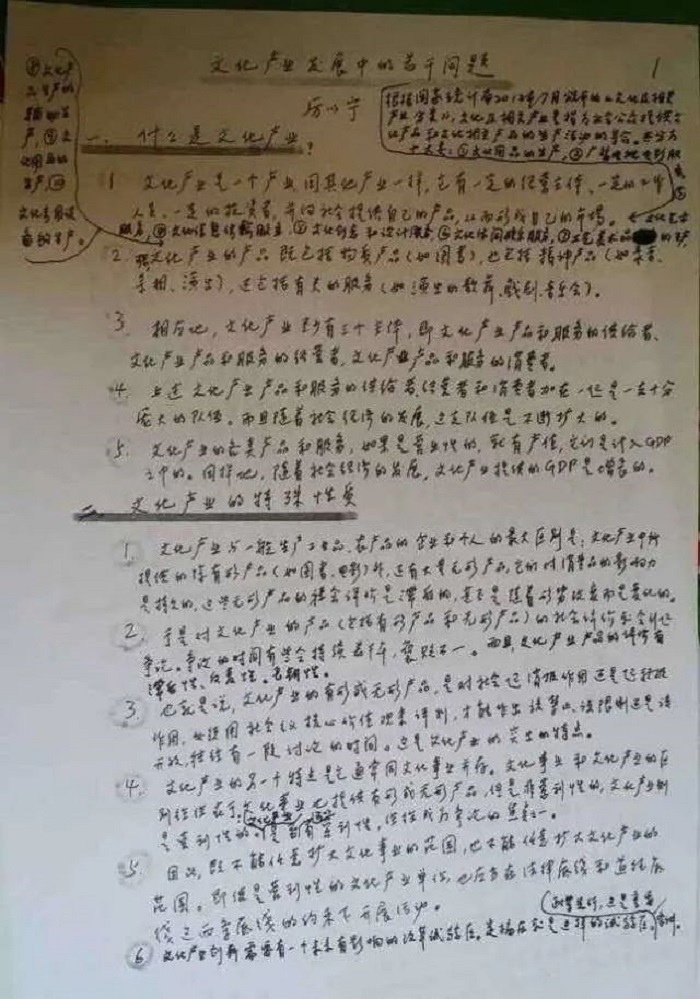 文化产业发展中的若干问题
1
厉以宁
根据国家统计局2012年7月颁布的《文化及相关
产业分类》,文化及相关产业是指为社会公众提供文
化产品和文化相关产品的生产活动的集合。
①文化用品的生产,②广播电视电影服
一、什么是文化产业?
1 文化产业是一个产业,同其他产业一样,它有一定的经营主体、一定的工作
人员、一定的投资者,并向社会提供自己的产品,从而形成自己的市场。
服务,④文化信息传输服务,⑤文化创意和设计服务,⑥文化休闲娱乐服务,⑦工艺美术品的生产
⑧文化产
品生产的
辅助生
产,⑨文
化用品的
生产,⑩
文化专用设
备的生产。
2. 文化产业的产品既包括物质产品(如图书),也包括精神产品(如
演出),还包括有关的服务(如演出的歌舞、戏剧、音乐会)。
3. 相应地,文化产业至少有三个主体,即文化产业产品和服务的供给者、
文化产业产品和服务的经营者,文化产业产品和服务的消费者。
4. 上述文化产业产品和服务的供给者、经营者和消费者加在一起是一支十分
庞大的队伍。而且随着社会经济的发展,这支队伍是不断扩大的。
5. 文化产业的各类产品和服务,如果是营业性的,就有产值,它们是计入GDP
之中的。同样地,随着社会经济的发展,文化产业提供的GDP是增长的。
二、文化产业的特殊性质
1. 文化产业与一般生产工业品、农产品的企业和个人的最大区别是:文化产业中所
提供的除有形产品(如图书、电影)外,还有大量无形产品,它们对消费者的影响力
是持久的,这些无形产品的社会评价是滞后的,甚至是随着形势改变而变化的。
2. 于是对文化产业的产品(包括有形产品和无形产品)的社会评价会引起
争论。争论的时间有些会持续若干年,褒贬不一。而且,文化产业产品的评价有
滞后性、反复性、长期性。
3. 也就是说,文化产业的有形或无形产品,是对社会起消极作用还是起积极
作用,要运用社会主义核心价值观来评判,才能作出该禁止、该限制还是该
开放,往往有一段讨论的时间。这是文化产业的突出的特点。
4. 文化产业的另一个特点是它通常同文化事业并存。文化事业和文化产业的区
别往往在于,文化事业也提供有形或无形产品,但是非营利性的,文化产业则
是营利性的。
5. 因此,既不能任意扩大文化事业的范围,也不能任意扩大文化产业的
范围。即使是营利性的文化产业单位,也应当在法律底线和道德底
线这两条底线的约束下开展活动。
⑥ 文化产业创新需要有一个未来有影响的改革试验区。